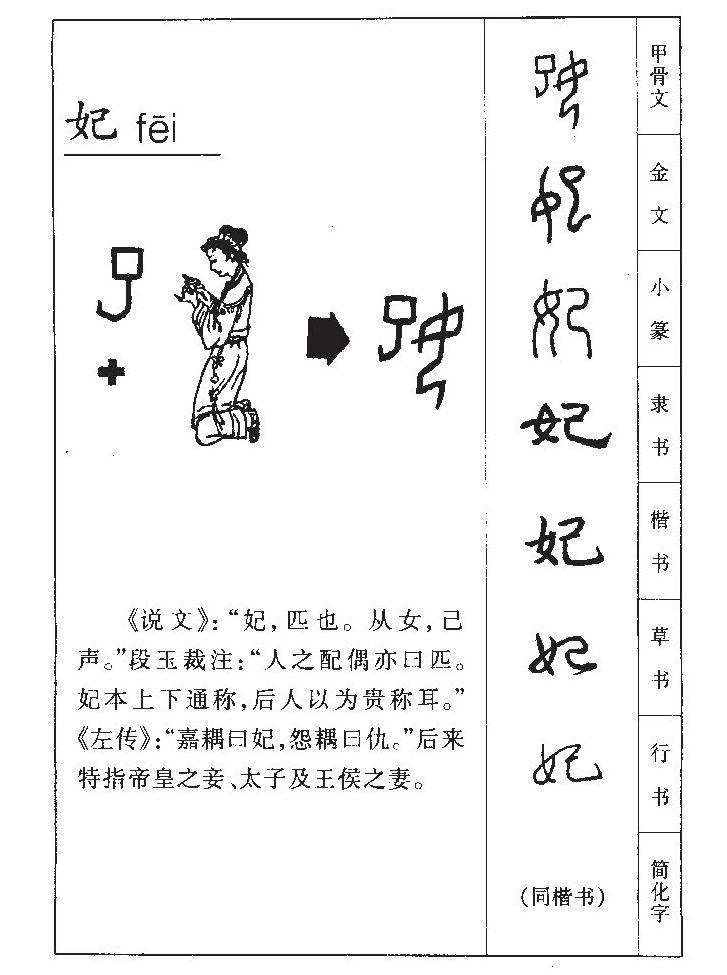 妃 fēi
《说文》：“妃，匹也。从女，己
声。”段玉裁注：“人之配偶亦曰匹。
妃本上下通称，后人以为贵称耳。”
《左传》：“嘉耦曰妃，怨耦曰仇。”后来
特指帝皇之妾、太子及王侯之妻。
妃 甲骨文
妃 金文
妃 小篆
妃 隶书
妃 楷书
妃 草书
妃 行书
（同楷书） 简化字